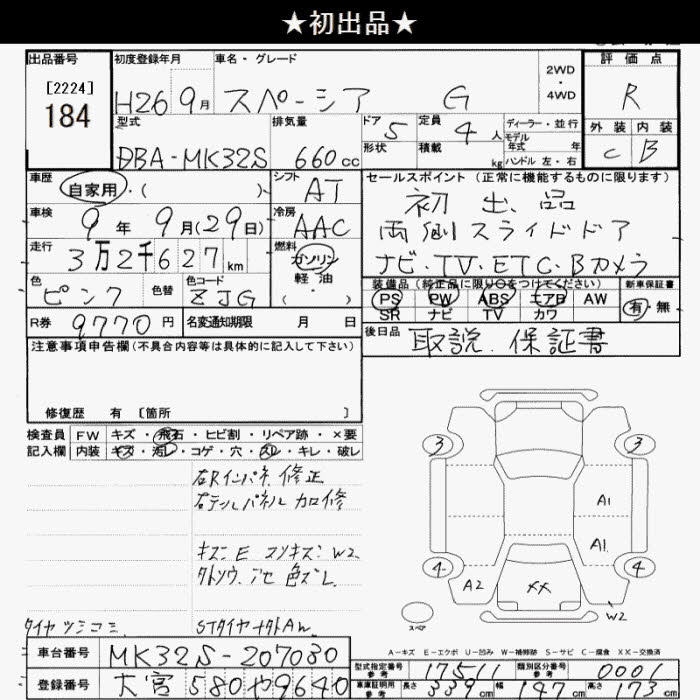 ★初出品★
出品番号 初度登録年月 車名・グレード 2WD・4WD 評価点
[2224]
184
H26 9月 スペーシア G R
型式 排気量 ドア 5 定員 4人 ディーラー・並行 外装 内装
モデル年式 年
DBA-MK32S 660cc 形状 積載 kg ハンドル 左・右 C B
車歴 シフト セールスポイント (正常に機能するものに限ります)
自家用・( ) AT
初出品
車検 冷房
9年 9月(29日) AAC 両側スライドドア
走行 燃料
3万2千627km ガソリン・軽油・( ) ナビ・TV・ETC・Bカメラ
色 色替 色コード 装備品(純正品に限り○をつけてください) 新車保証書
ピンク ZJG PS PW ABS エアB AW 有・無
SR ナビ TV カワ
R券 9770円 名変通知期限 月 日 後日品 取説.保証書
注意事項申告欄(不具合内容等は具体的に記入して下さい)
修復歴 有 〔箇所 〕
検査員 FW キズ・飛石・ヒビ割・リペア跡・×要
記入欄 内装 キズ・汚レ・コゲ・穴・スレ・キレ・破レ
右Rインパネ 修正
右テールパネル 加修
キズ E スリキズ W2
タイヤツミコミ STタイヤナットAW
3 3
A1
A1
4 4
A2 XX
W2
スペア
A-キズ E-エクボ U-凹み W-補修跡 S-サビ C-腐食 XX-交換済
車台番号 MK32S-207080 型式指定番号 参考 17511 類別区分番号 参考 0001
登録番号 大宮580や9640 車庫証明用 参考 長さ 339cm 幅 147cm 高さ 173cm